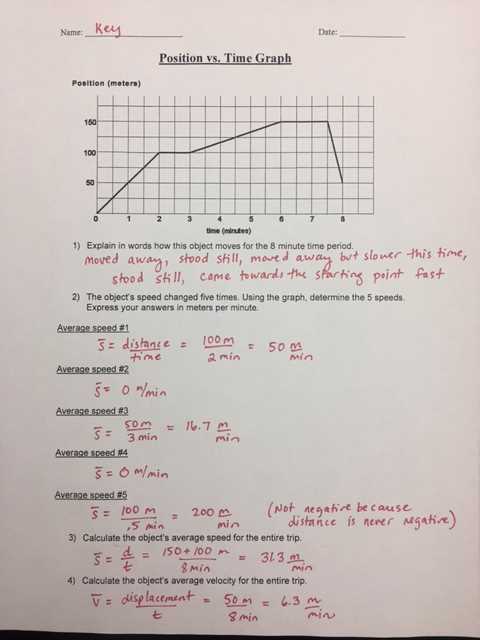 Name: Key Date:
Position vs. Time Graph
Position (meters)
150
100
50
0 1 2 3 4 5 6 7 8
time (minutes)
1) Explain in words how this object moves for the 8 minute time period.
moved away, stood still, moved away but slower this time,
stood still, come towards the starting point fast
2) The object's speed changed five times. Using the graph, determine the 5 speeds.
Express your answers in meters per minute.
Average speed #1
s̄ = distance/time = 100 m/2 min = 50 m/min
Average speed #2
s̄ = 0 m/min
Average speed #3
s̄ = 50 m/3 min = 16.7 m/min
Average speed #4
s̄ = 0 m/min
Average speed #5
s̄ = 100 m/.5 min = 200 m/min (Not negative because
distance is never negative)
3) Calculate the object's average speed for the entire trip.
s̄ = d/t = 150 + 100 m/8 min = 31.3 m/min
4) Calculate the object's average velocity for the entire trip.
v̄ = displacement/t = 50 m/8 min = 6.3 m/min